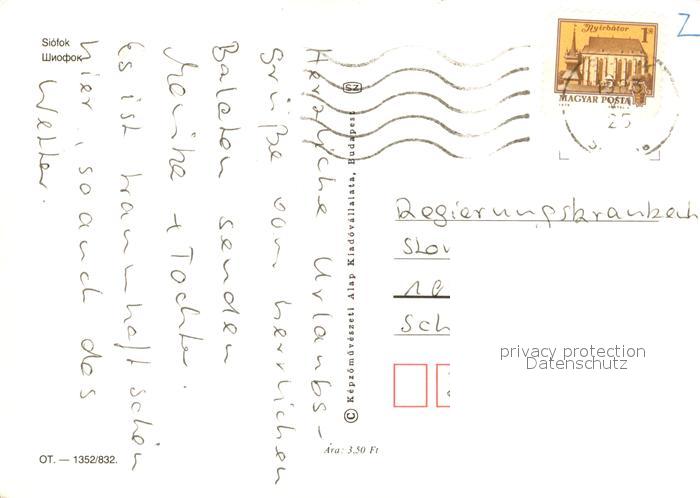 Siófok
Шиофок
Herzliche Urlaubs-
grüße vom herrlichen
Balaton senden
Monika + Tochter.
Es ist traumhaft schön
hier, so auch das
Wetter.
SZ
© Képzőművészeti Alap Kiadóvállalata, Budapest
Ára: 3,50 Ft
OT. — 1352/832.
Nyírbátor
MAGYAR POSTA
25
Z
Regierungskrankenh
Slov
10
Sch
privacy protection
Datenschutz